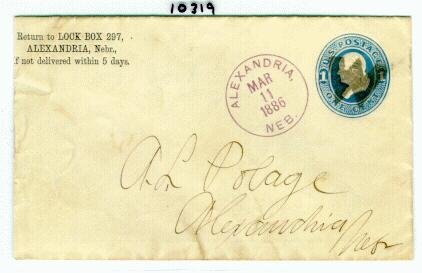 10319
Return to LOCK BOX 297,
ALEXANDRIA, Nebr.,
if not delivered within 5 days.
ALEXANDRIA,
MAR
11
1886
NEB.
U.S. POSTAGE
1 1
ONE CENT
A. L. Polage
Alexandria
Nebr